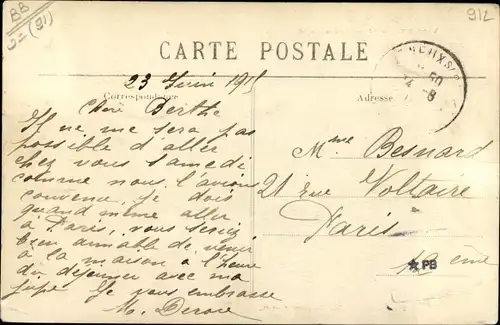 BB
(91)
912
CARTE POSTALE
23 Juin 191
Correspondance
Adresse
Chère Berthe
Il ne me sera pas
possible d'aller
chez vous samedi
comme nous l'avions
convenu, je dois
quand même aller
à Paris, vous seriez
bien aimable de venir
à la maison à l'heure
du déjeuner avec ma
Je vous embrasse
M.
Mme Besnard
21 rue Voltaire
Paris
ème
PB